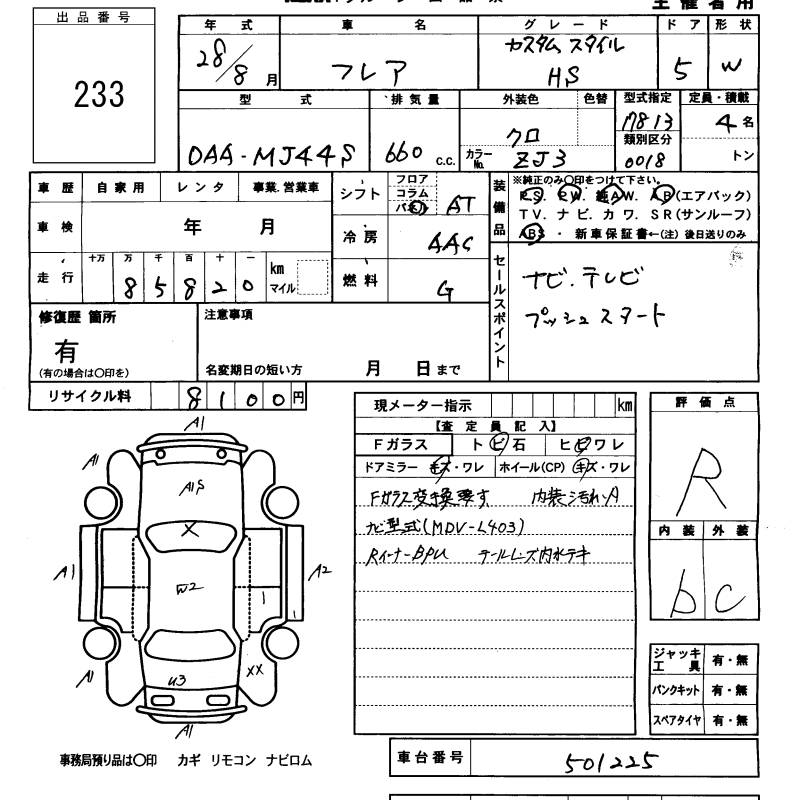 主催者用
出品番号
233
年式 車名 グレード ドア 形状
28/8月 フレア カスタムスタイル HS 5 W
型式 排気量 外装色 色替 型式指定 定員・積載
DAA-MJ44S 660 C.C. クロ カラーNo. ZJ3 17813 4名
類別区分
0018 トン
車歴 自家用 レンタ 事業.営業車
車検 年 月
走行 十万 万 千 百 十 一 km マイル
8 5 8 2 0
シフト フロア コラム パネル AT
冷房 AAC
燃料 G
装備品
※純正のみ○印をつけて下さい。
PS. PW. 純AW. AB(エアバック)
TV. ナビ. カワ. SR(サンルーフ)
ABS ・ 新車保証書←(注) 後日送りのみ
セールスポイント
ナビ.テレビ
プッシュスタート
修復歴 箇所
有
(有の場合は○印を)
注意事項
名変期日の短い方 月 日まで
リサイクル料 8 1 0 0 円
現メーター指示 km
【査定員記入】
Fガラス トビ石 ヒビワレ
ドアミラー キズ・ワレ ホイール(CP) キズ・ワレ
Fガラス交換要す 内装汚れ
ナビ型式(MDV-L403)
RイナーBPU テールレンズ内水テキ
評価点
R
内装 外装
b C
ジャッキ 工具 有・無
パンクキット 有・無
スペアタイヤ 有・無
A1
A1
A1
A1S
X
A1
W2
1
1
A2
A1
U3
XX
A1
事務局預り品は○印 カギ リモコン ナビロム
車台番号 501225